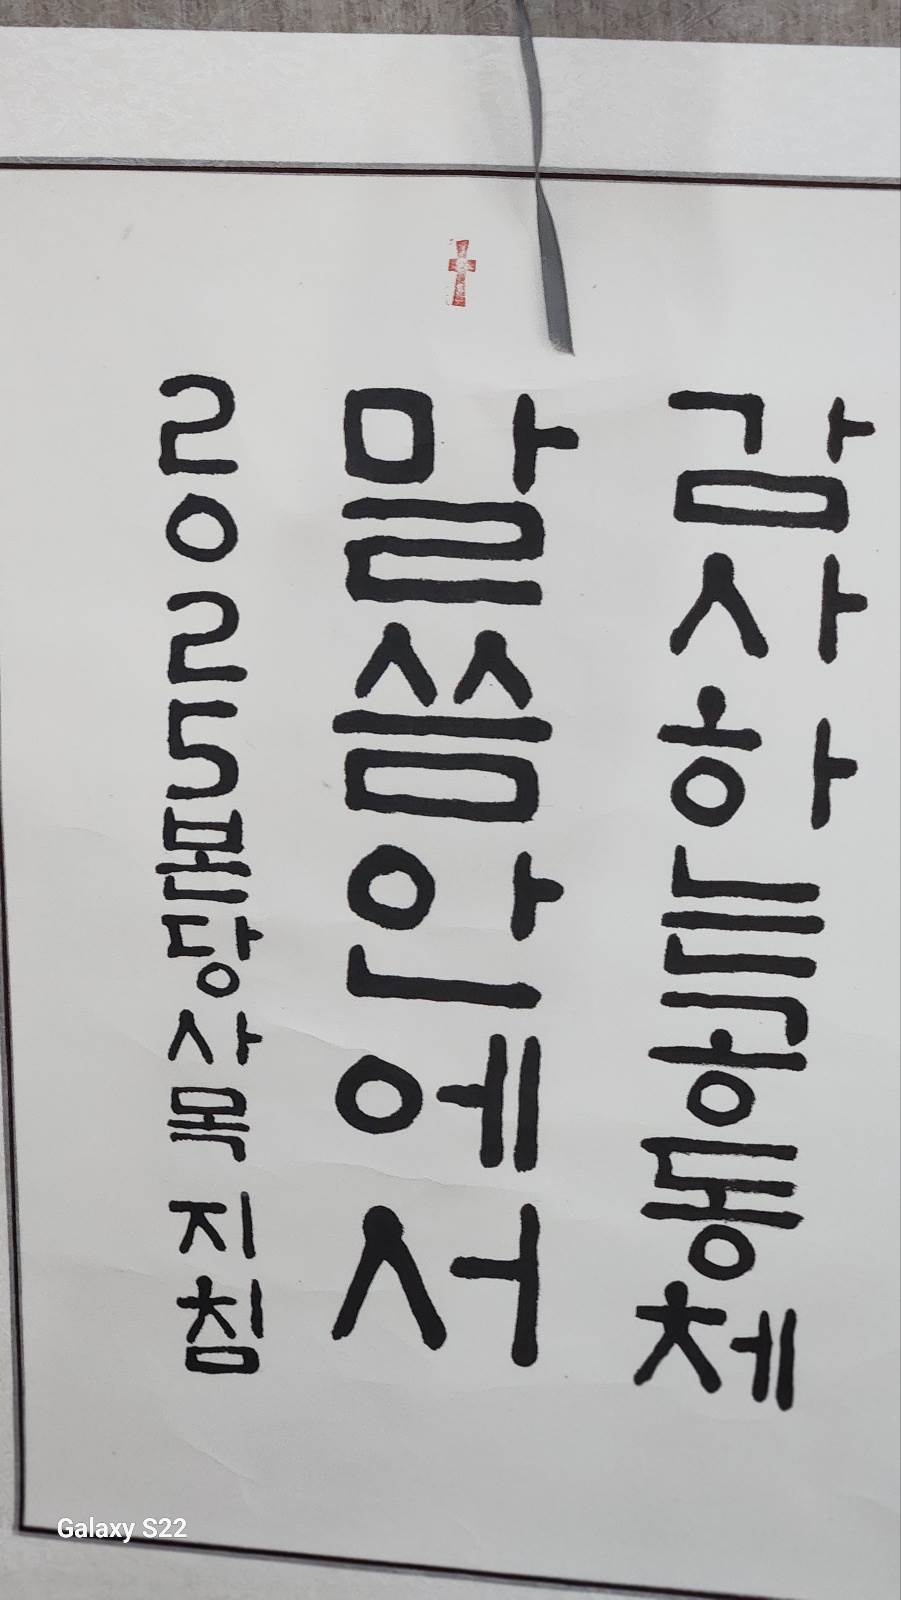 감사하는공동체
말씀안에서
2025본당사목 지침
Galaxy S22